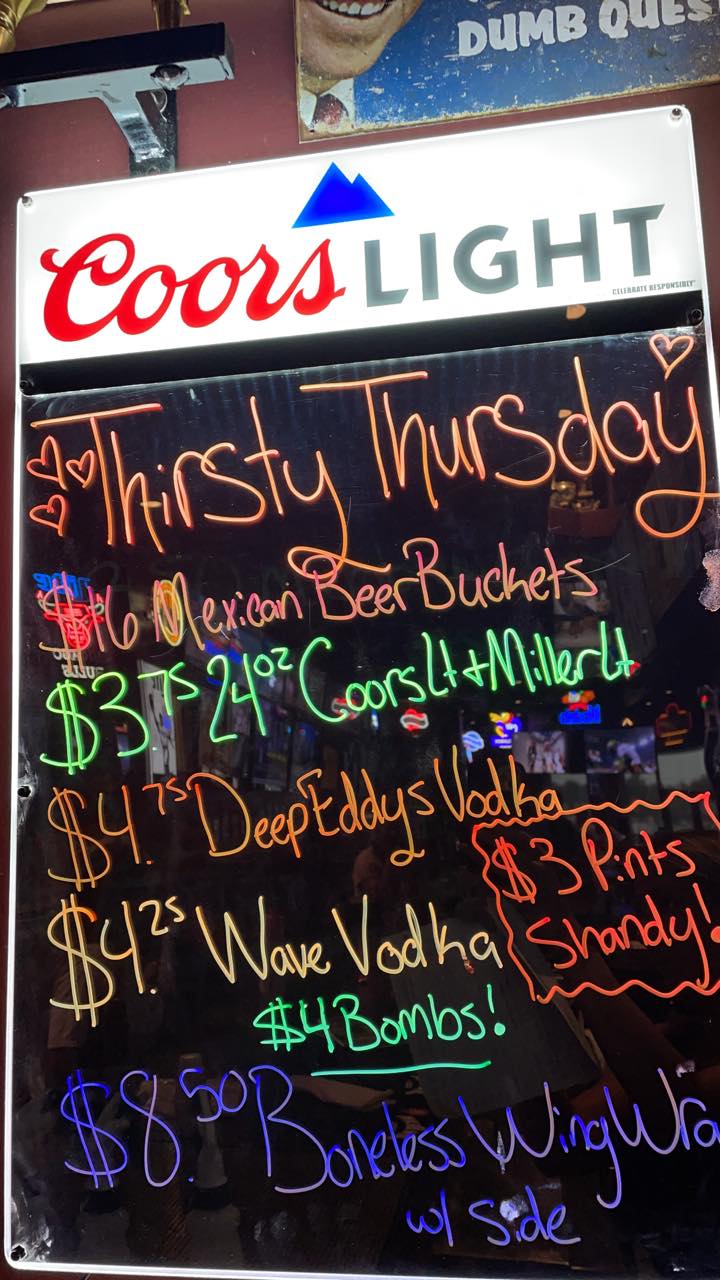 DUMB QUES
Coors LIGHT
CELEBRATE RESPONSIBLY
Thirsty Thursday
$16 Mexican Beer Buckets
$3.75 24oz Coors Lt + Miller Lt
$4.75 Deep Eddys Vodka
$3 Pints
Shandy!
$4.25 Wave Vodka
$4 Bombs!
$8.50 Boneless Wing Wra
w/ Side